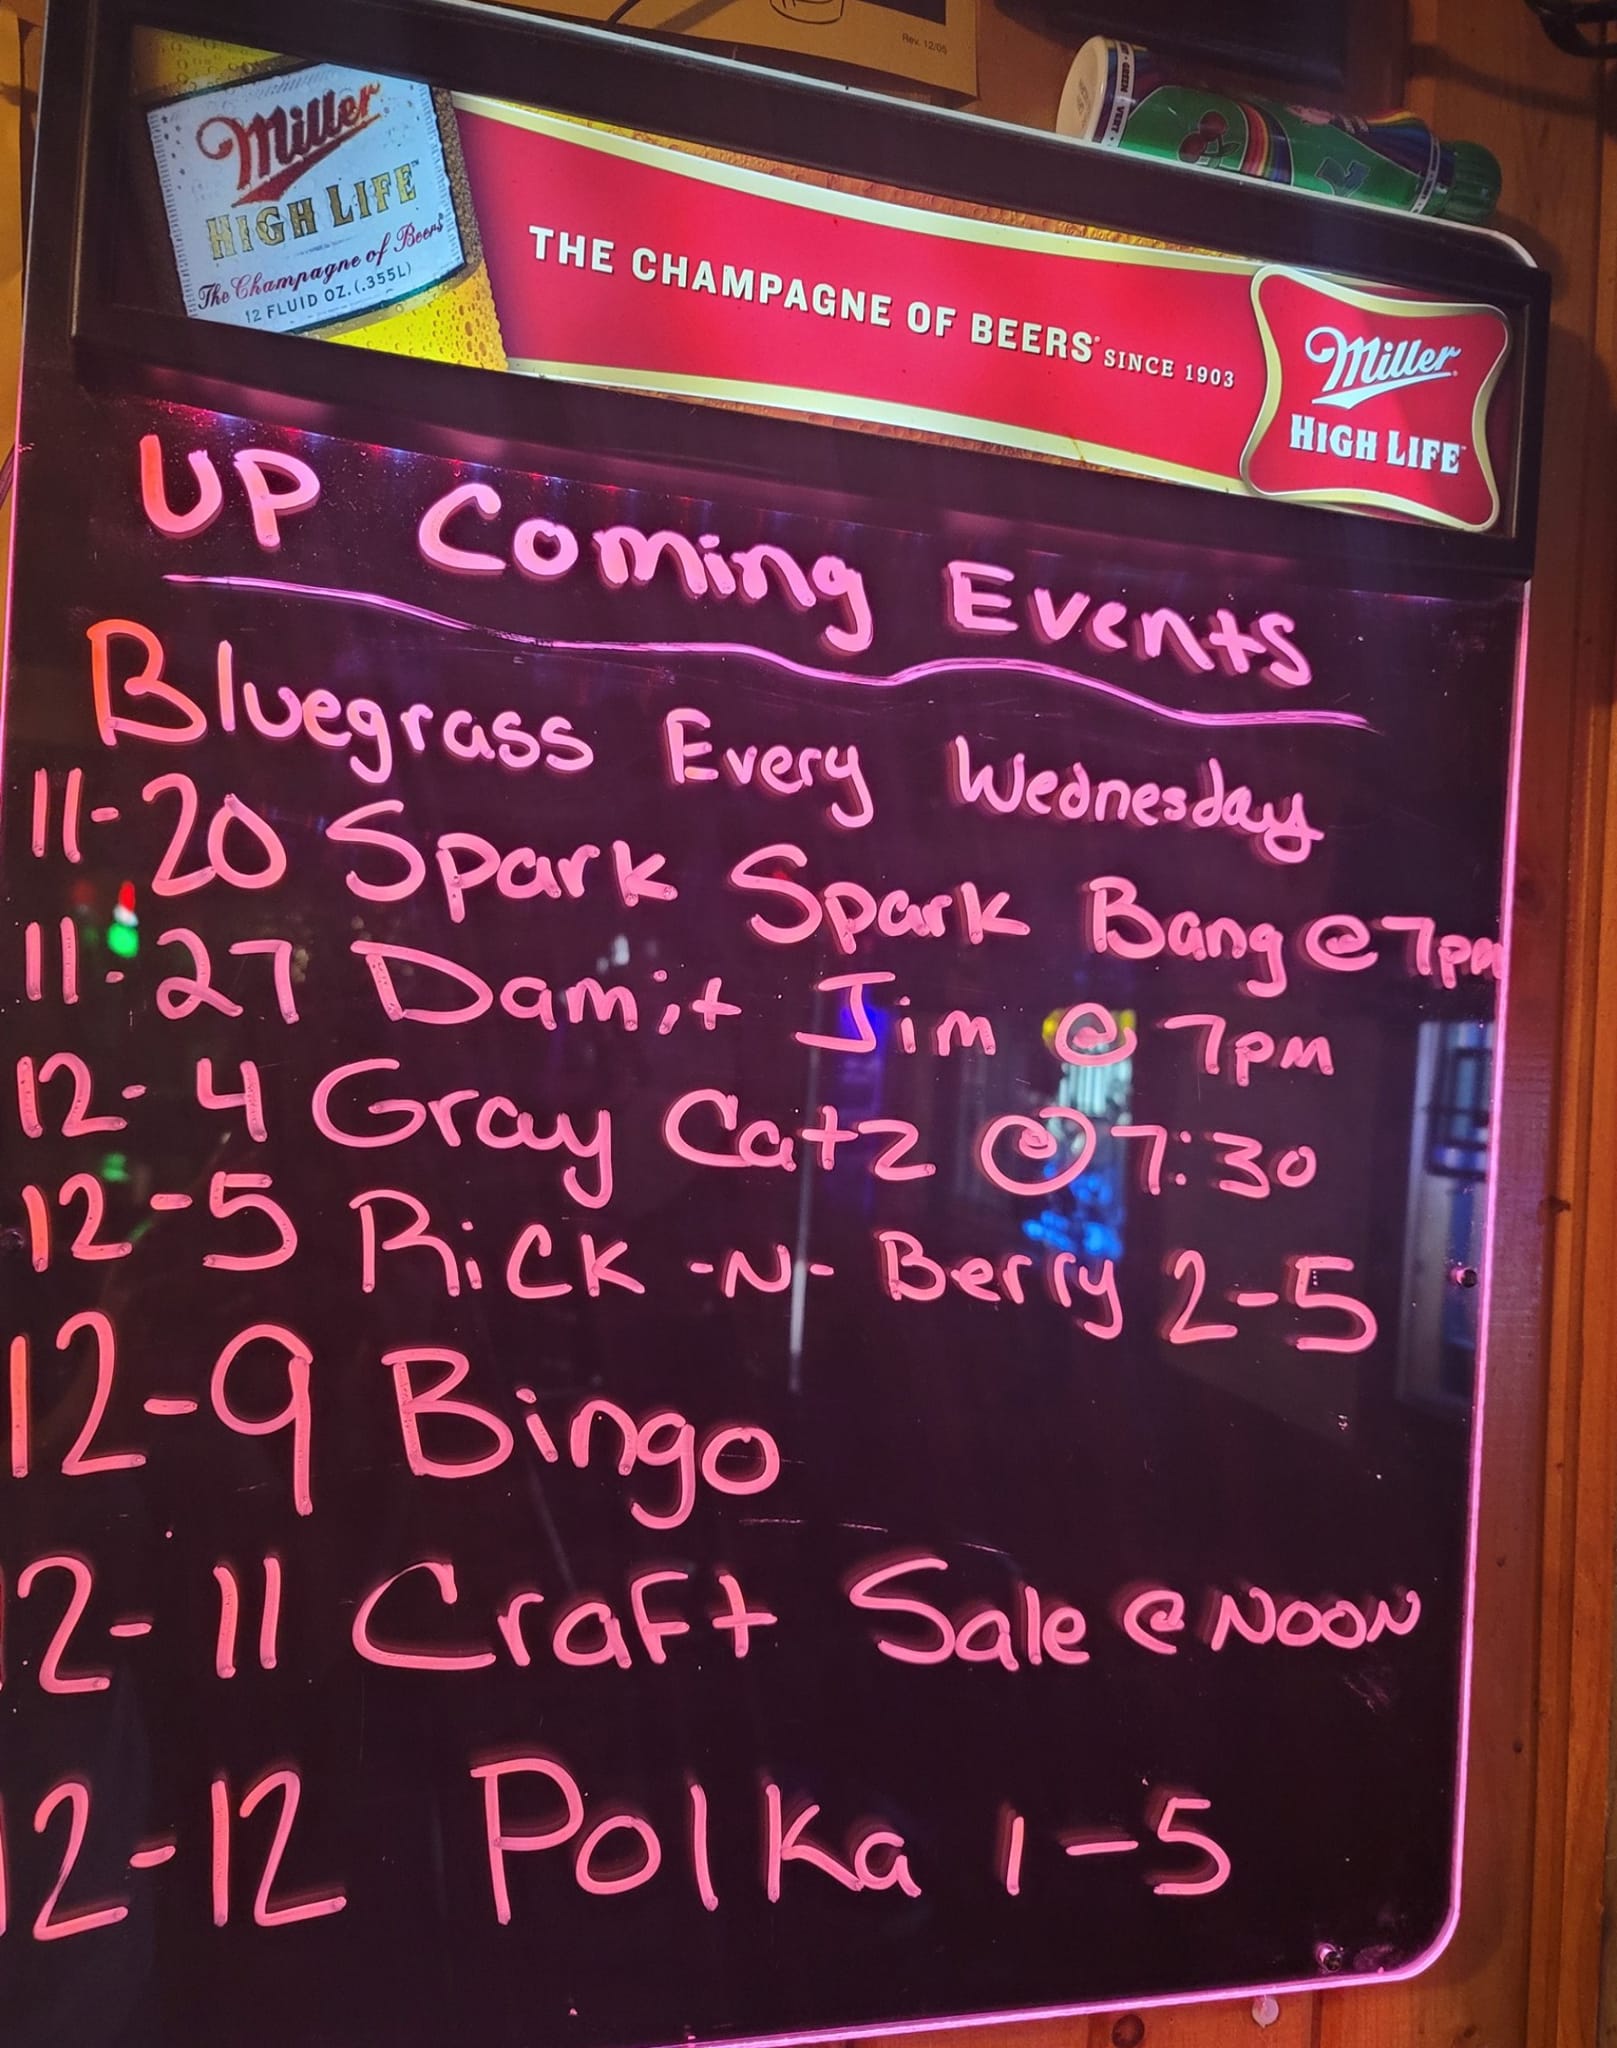 Rev. 12/05
GREEN • VERT
Miller
HIGH LIFE™
The Champagne of Beers
12 FLUID OZ. (.355L)
THE CHAMPAGNE OF BEERS® SINCE 1903
Miller
HIGH LIFE™
UP Coming Events
Bluegrass Every Wednesday
11-20 Spark Spark Bang @ 7pm
11-27 Damit Jim @ 7pm
12-4 Gray Catz @ 7:30
12-5 Rick -N- Berry 2-5
12-9 Bingo
12-11 Craft Sale @ NOON
12-12 Polka 1-5